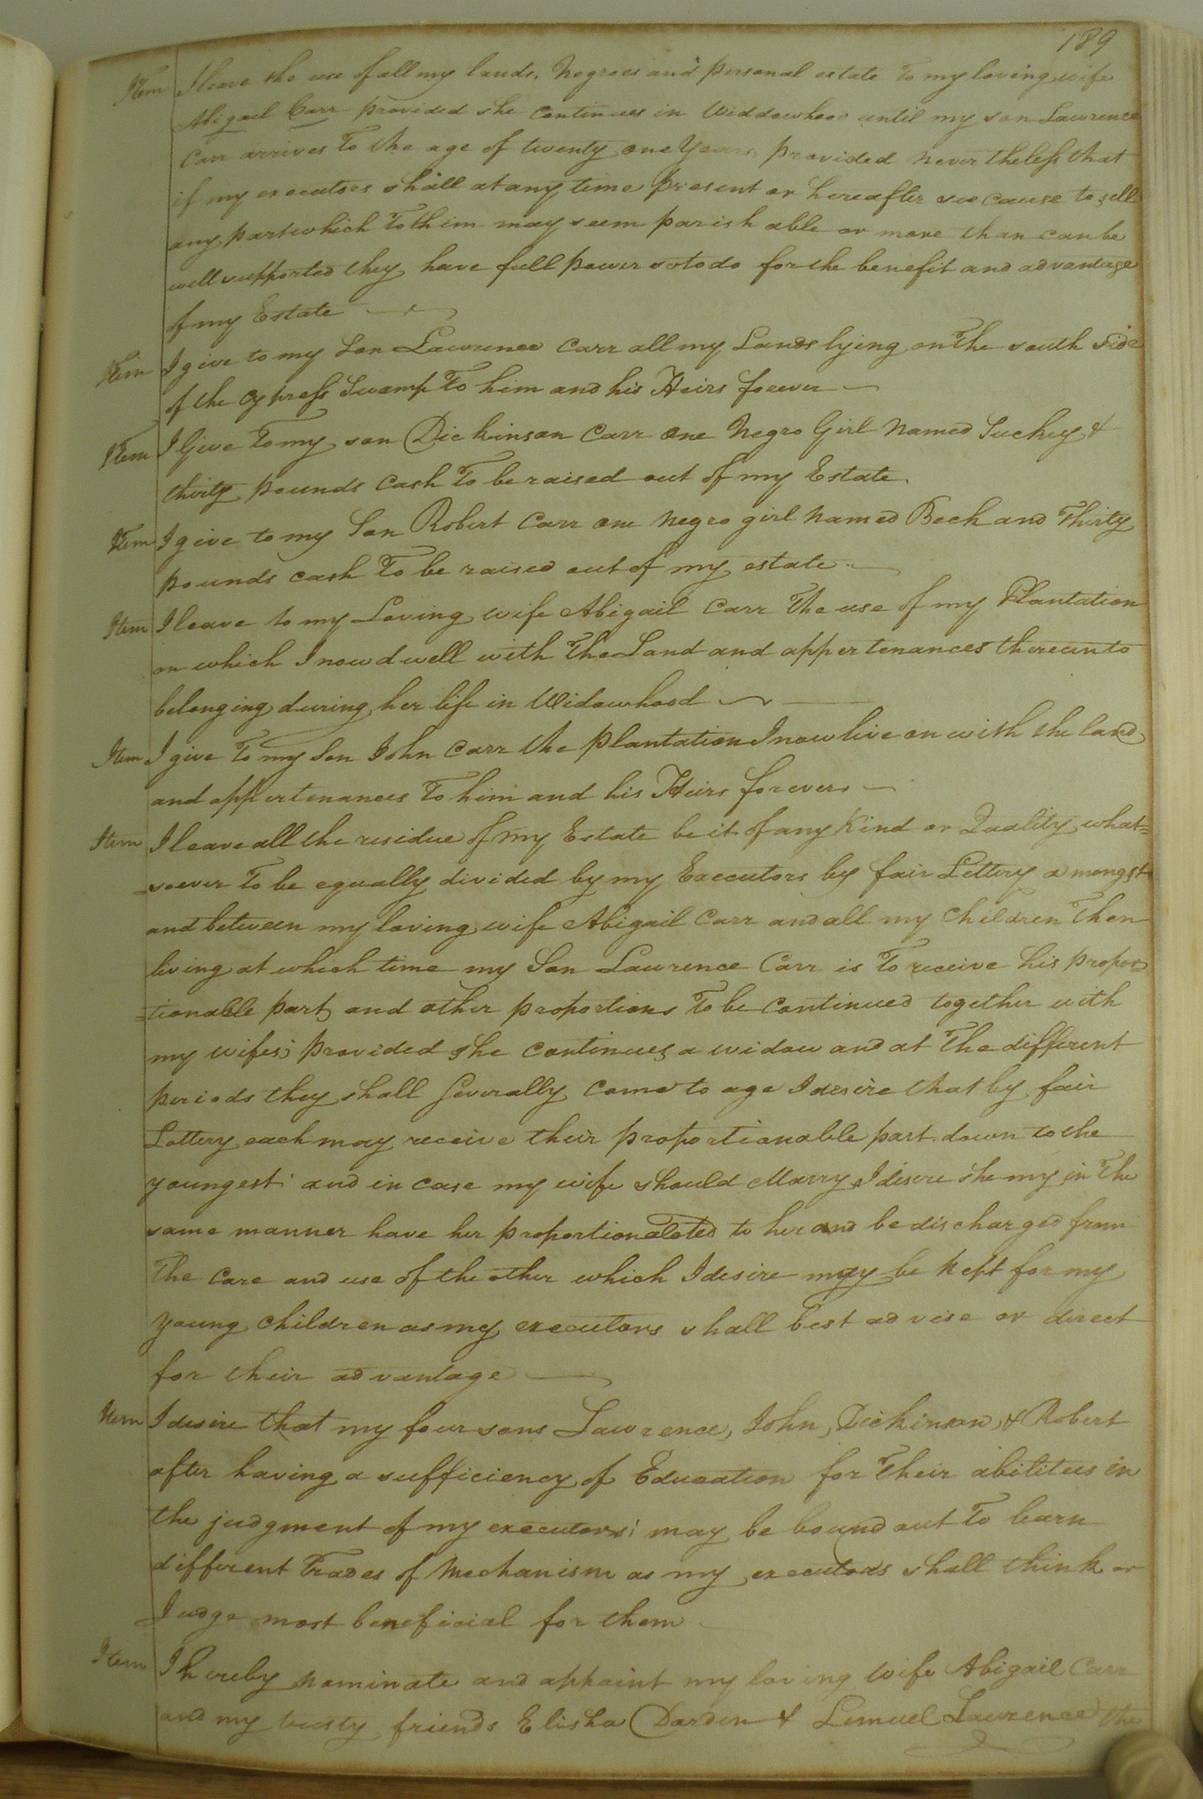 189
Item I leave the use of all my lands, Negroes and personal estate to my loving wife
Abigail Carr provided she continues in Widdowhood until my son Lawrence
Carr arrives To the age of twenty one Years, provided never theless that
if my executors shall at any time present or hereafter see cause to sell
any part which To them may seem perish able or more than can be
well supported they have full power so to do for the benefit and advantage
of my Estate
Item I give to my Son Lawrence Carr all my Lands lying on The south side
of the Cypress Swamp To him and his Heirs forever
Item I Give To my son Dickinson Carr one Negro Girl Named Suckey &
thirty pounds Cash To be raised out of my Estate
Item I give to my Son Robert Carr one Negro girl Named Beck and Thirty
pounds cash To be raised out of my estate
Item I leave to my Loving wife Abigail Carr The use of my Plantation
on which I now dwell with The Land and appertenances thereunto
belonging during her life in Widowhood
Item I give To my Son John Carr the plantation I now live on with the land
and appertenances To him and his Heirs forever
Item I leave all the residue of my Estate be it of any Kind or Quality what=
=soever To be equally divided by my Executors by fair Lottery amongst
and between my loving wife Abigail Carr and all my Children Then
living at which time my Son Lawrence Carr is To receive his propor
=tionable part and other proportions To be Continued together with
my wifes; provided she continues a widow and at The different
periods they shall Severally Come to age I desire that by fair
Lottery each may receive their proportionable part down to the
youngest and in case my wife should Marry I desire she my in The
same manner have her proportion aloted to her and be discharged from
The Care and use of the other which I desire may be kept for my
young children as my executors shall best advise or direct
for their advantage
Item I desire that my four sons Lawrence, John, Dickinson, & Robert
after having a sufficiency of Education for Their abilities in
the judgment of my executors; may be bound out To learn
different Trades of Mechanism as my executors shall think or
Judge most beneficial for them
Item I hereby nominate and appoint my loving wife Abigail Carr
and my trusty friends Elisha Darden & Lemuel Lawrence the